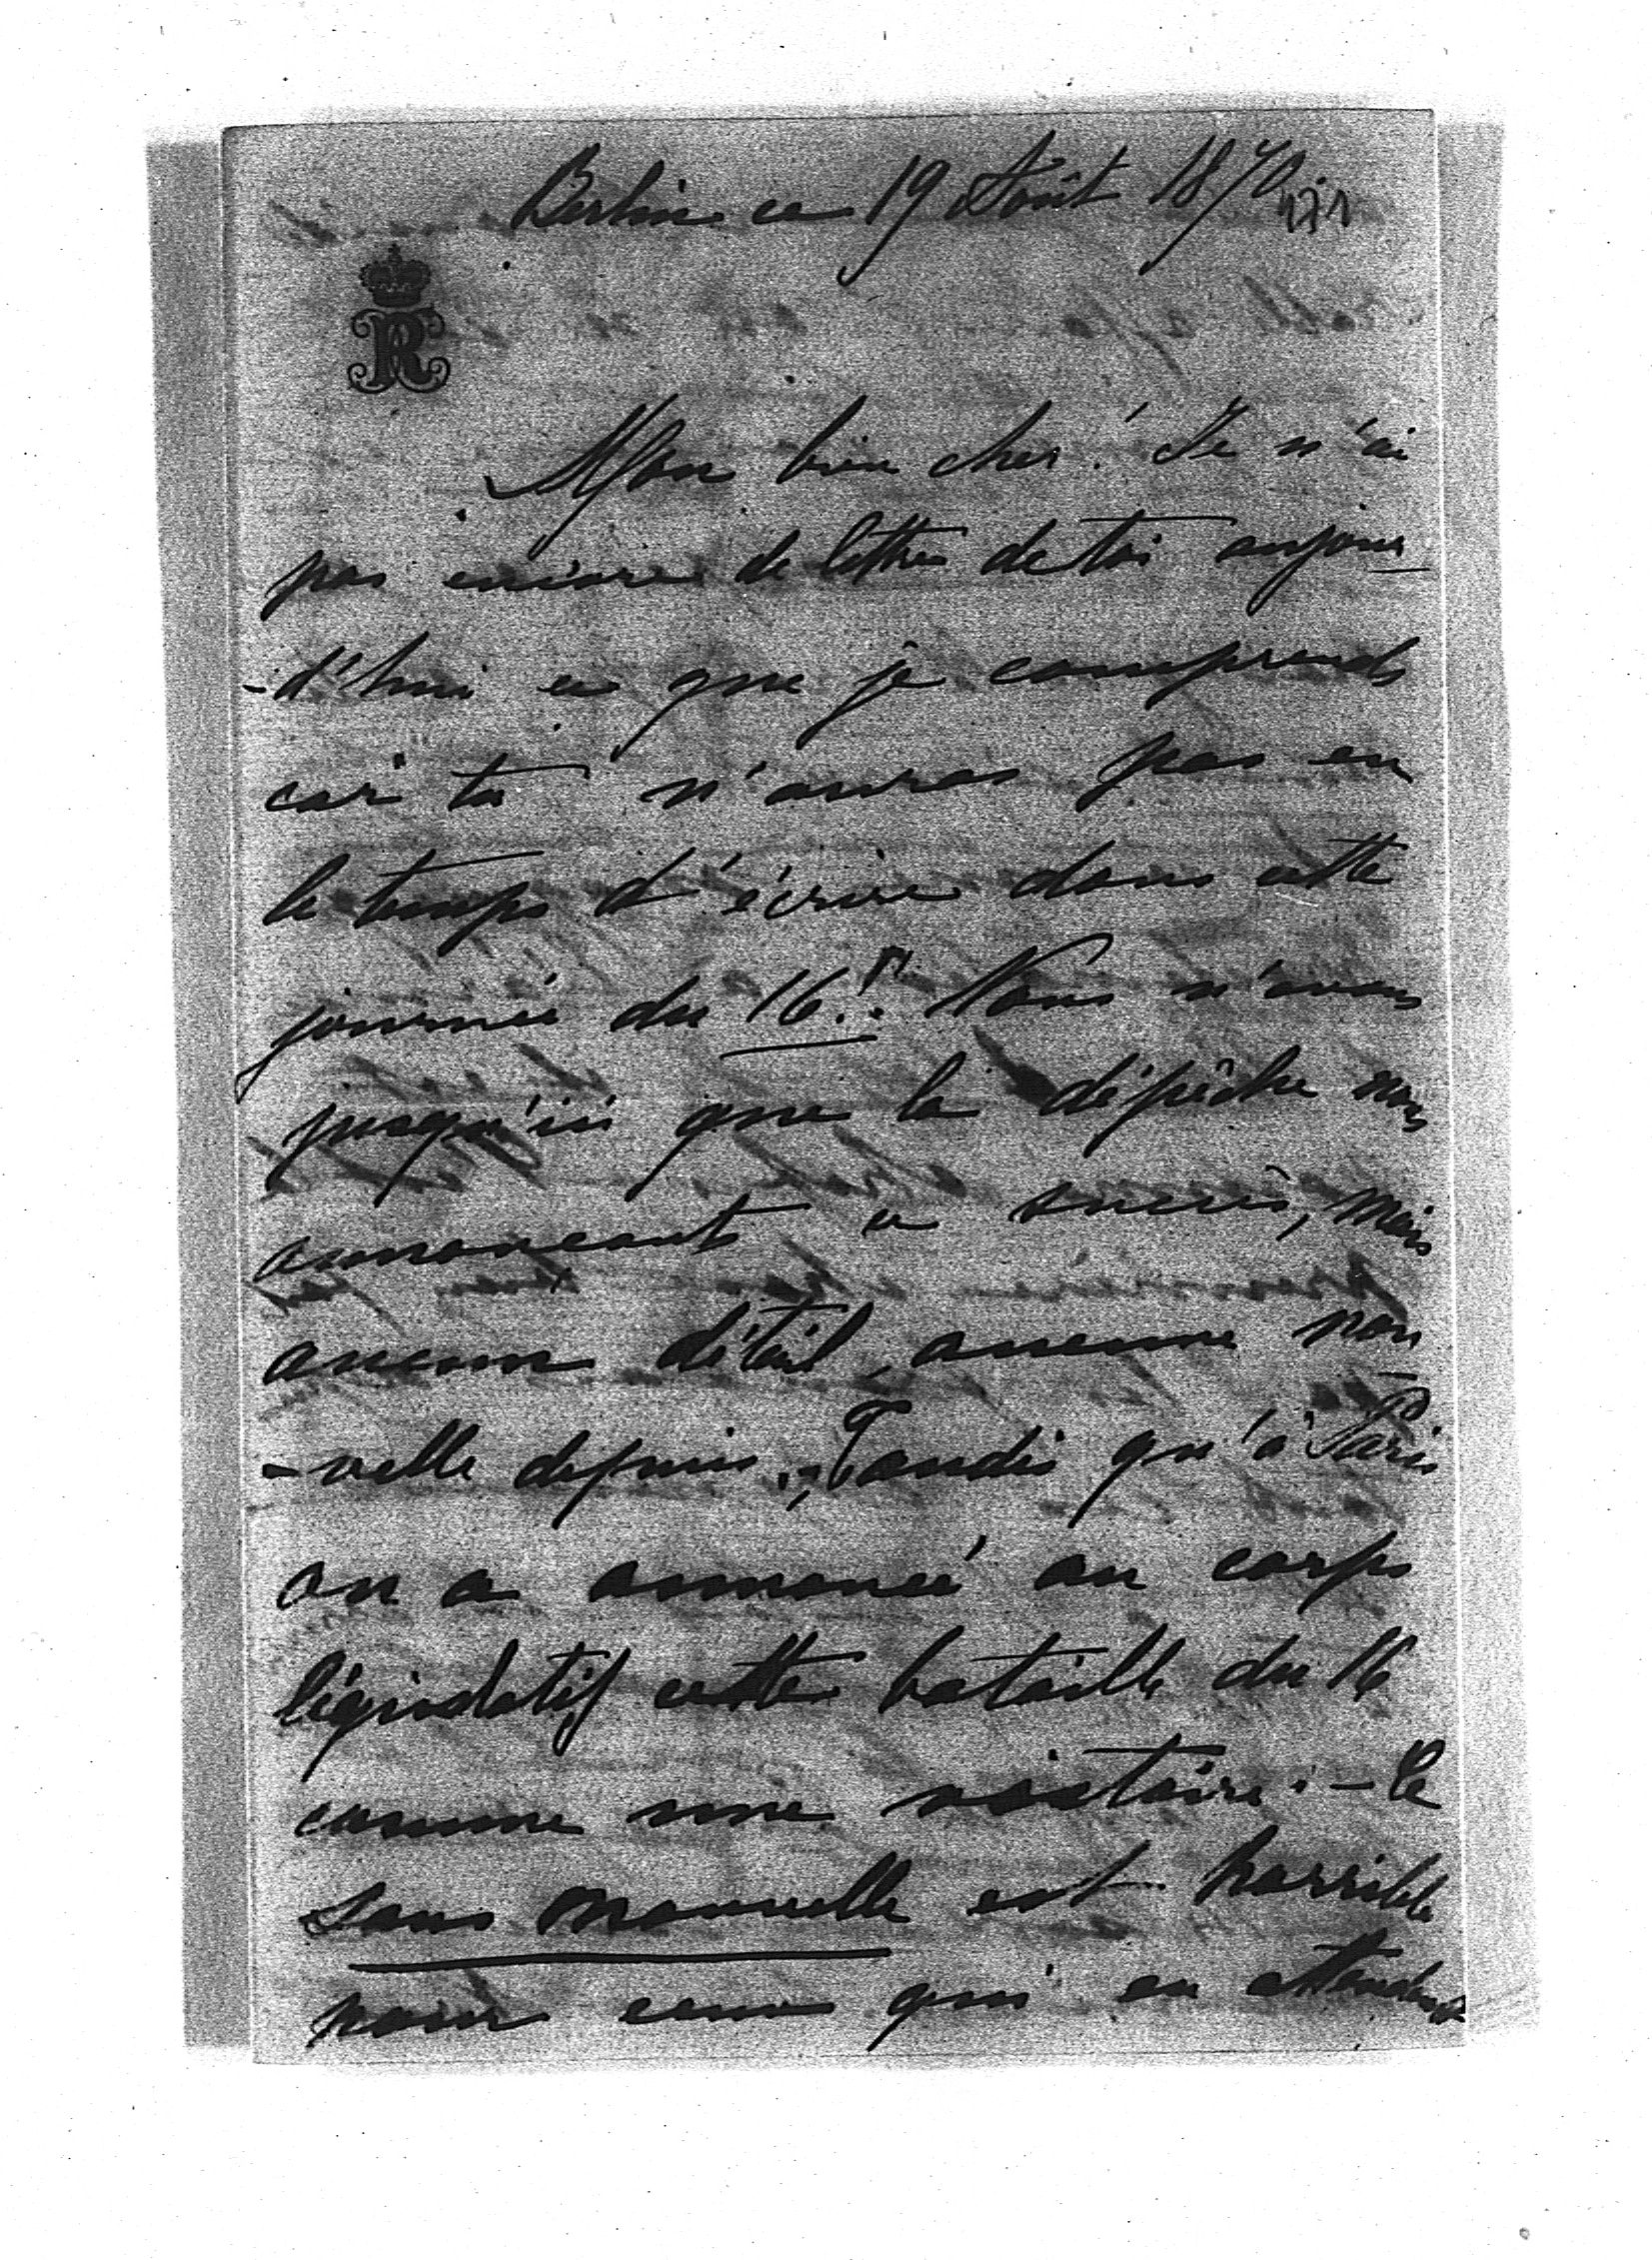 Berlin ce 19 Août 1870
171
R
Mon bien cher! Je n'ai
pas encore de lettre de toi aujour
-d'hui ce que je comprends
car tu n'auras pas eu
le temps d'écrire dans cette
journée du 16.! Nous n'avons
jusqu'ici que la dépêche nous
annoncant ce succès, mais
aucun détail, aucune nou
-velle depuis, Tandis qu'à Paris
on a annoncé au corps
législatif cette bataille du 16
comme une victoire. - Ce
sans nouvelle est horrible
pour ceux qui en attendent